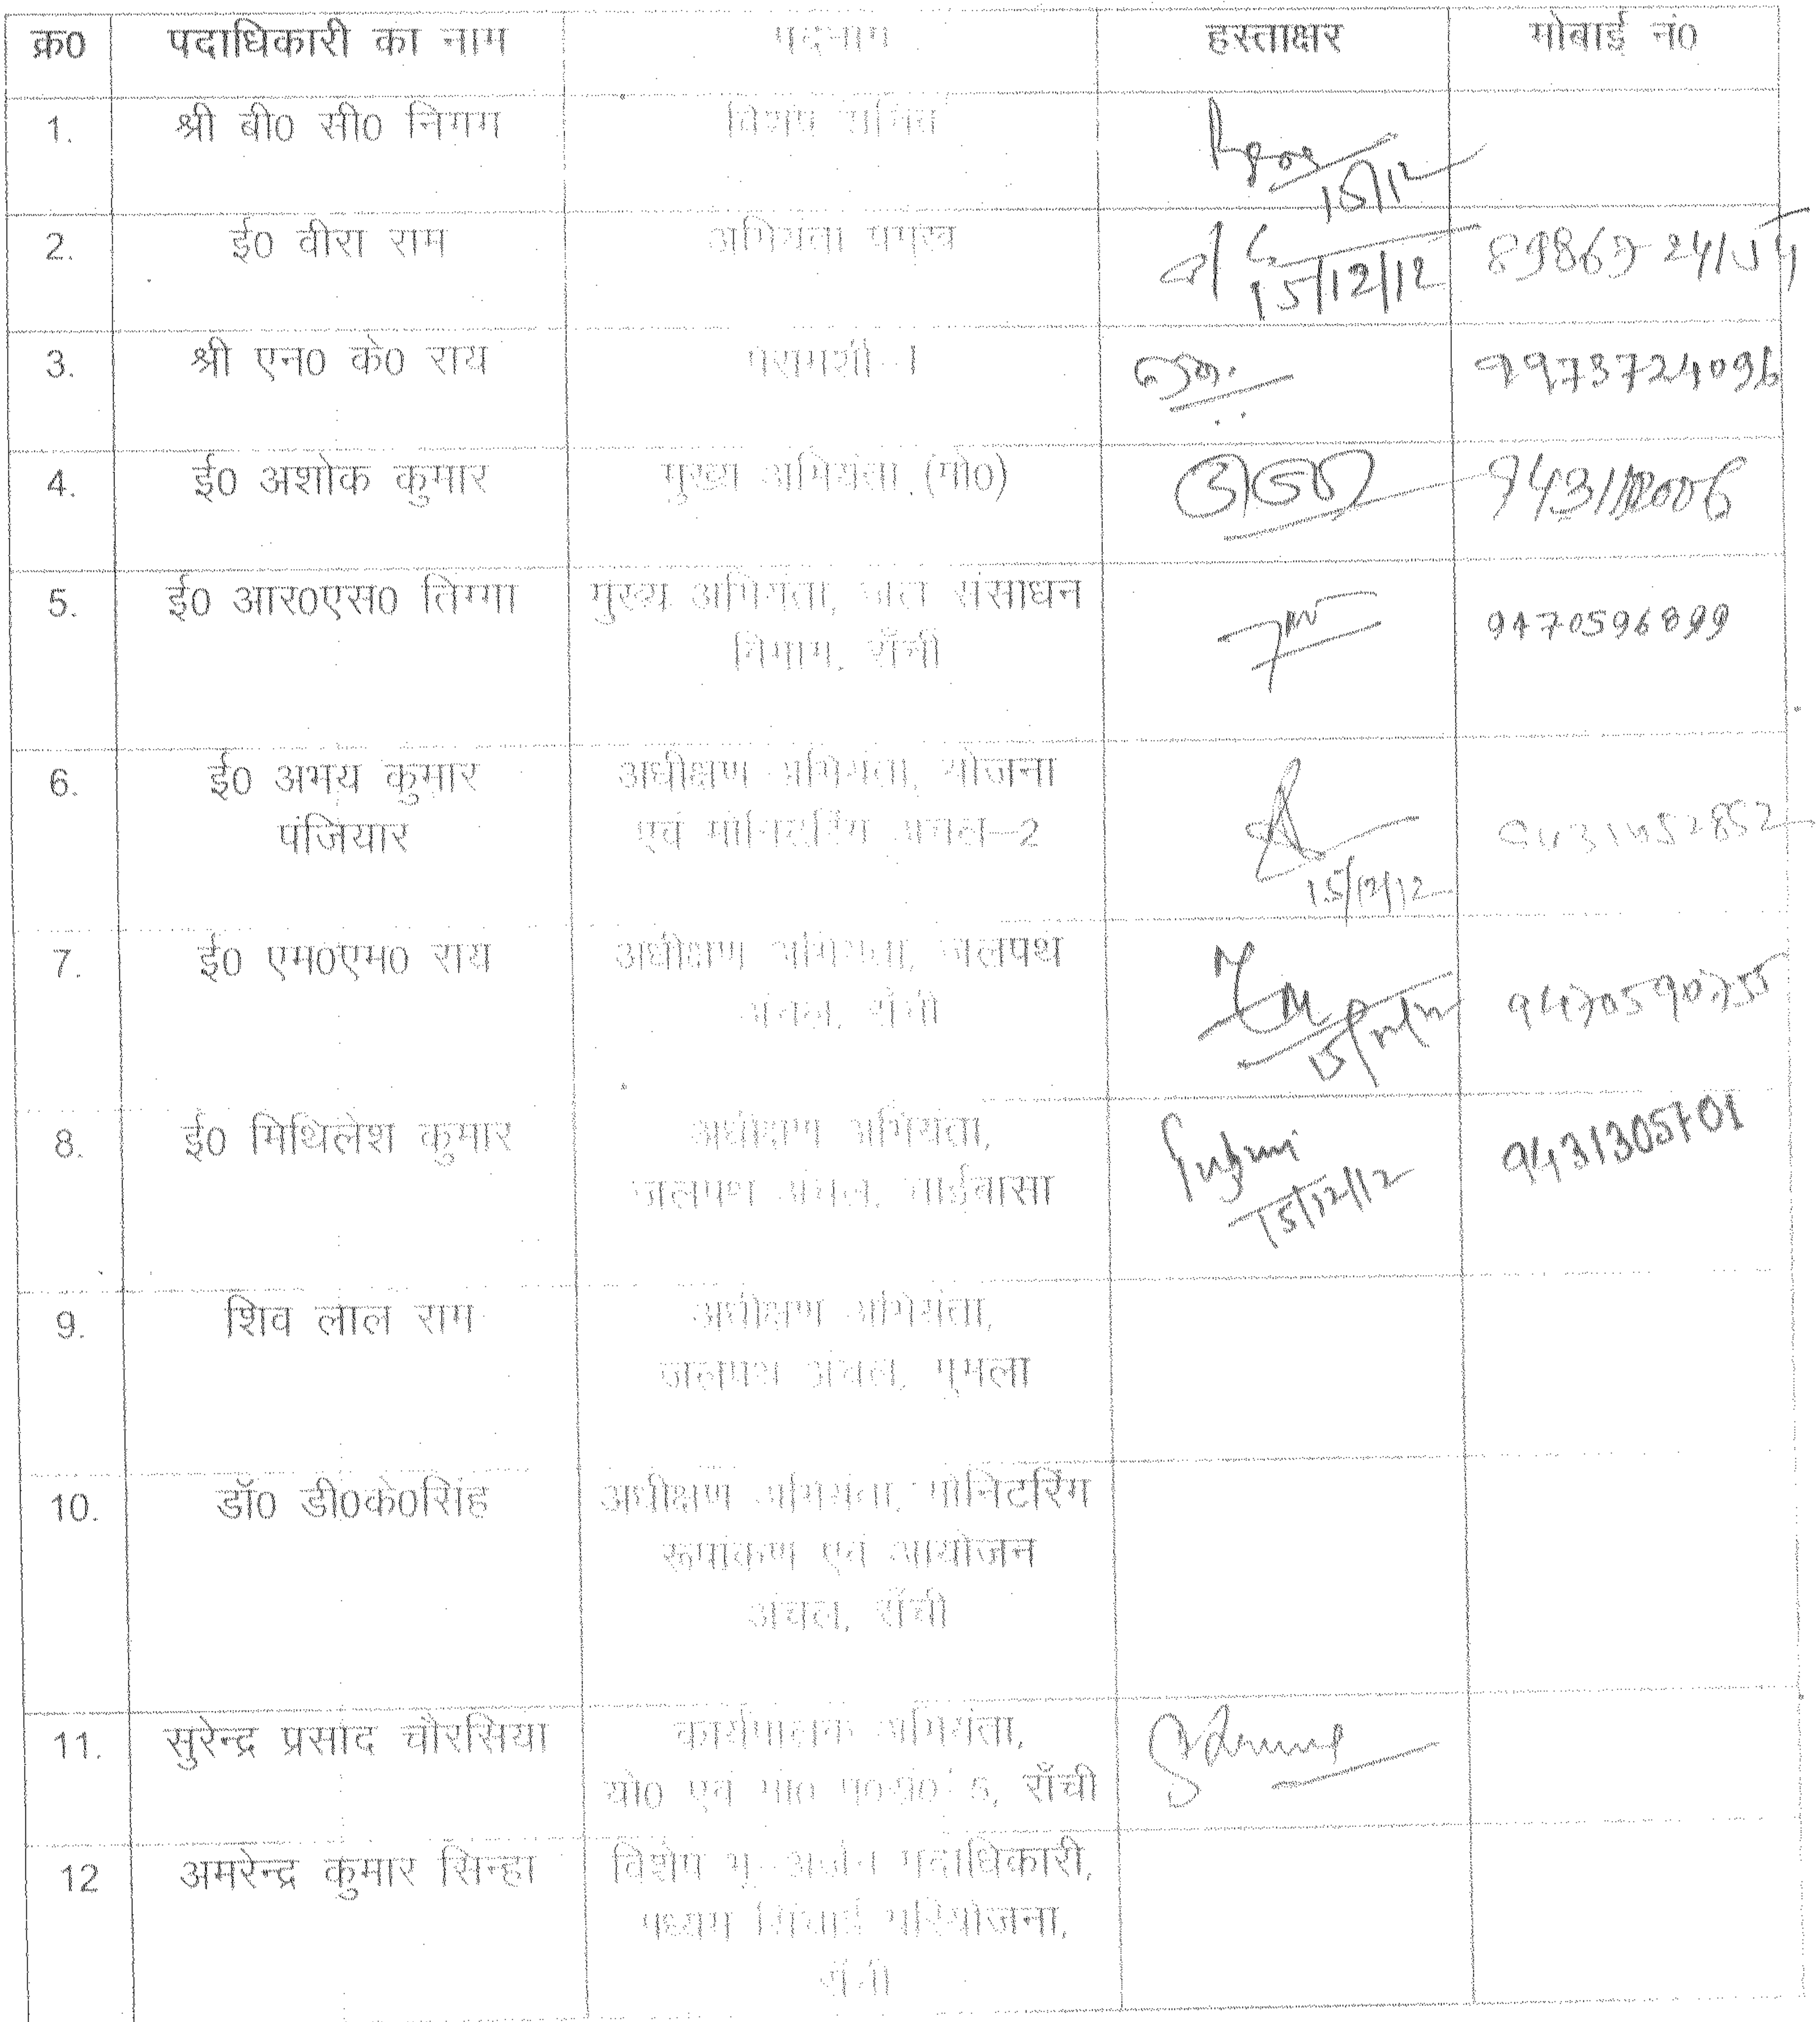 क्र0 पदाधिकारी का नाम पदनाम हस्ताक्षर मोबाई नं0
1. श्री बी0 सी0 निगम विशेष सचिव
15/12
2. ई0 वीरा राम अभियंता प्रमुख
15/12/12
3. श्री एन0 के0 राय परामर्शी-1 9973724096
4. ई0 अशोक कुमार मुख्य अभियंता (मो0)
5. ई0 आर0एस0 तिग्गा मुख्य अभियंता, जल संसाधन 9470596899
विभाग, राँची
6. ई0 अभय कुमार अधीक्षण अभियंता, योजना
पंजियार एवं मोनिटरिंग अंचल-2
15/12/12
7. ई0 एम0एम0 राय अधीक्षण अभियंता, जलपथ
अंचल, राँची
15/12/12
8. ई0 मिथिलेश कुमार अधीक्षण अभियंता, 9431305701
जलपथ अंचल, चाईबासा
15/12/12
9. शिव लाल राम अधीक्षण अभियंता,
जलपथ अंचल, गुमला
10. डॉ0 डी0के0सिंह अधीक्षण अभियंता, मोनिटरिंग
रूपांकण एवं आयोजन
अंचल, राँची
11. सुरेन्द्र प्रसाद चौरसिया कार्यपालक अभियंता,
यो0 एवं मो0 प्र0सं0 5, राँची
12 अमरेन्द्र कुमार सिन्हा विशेष भू-अर्जन पदाधिकारी,
मध्यम सिंचाई परियोजना,
राँची